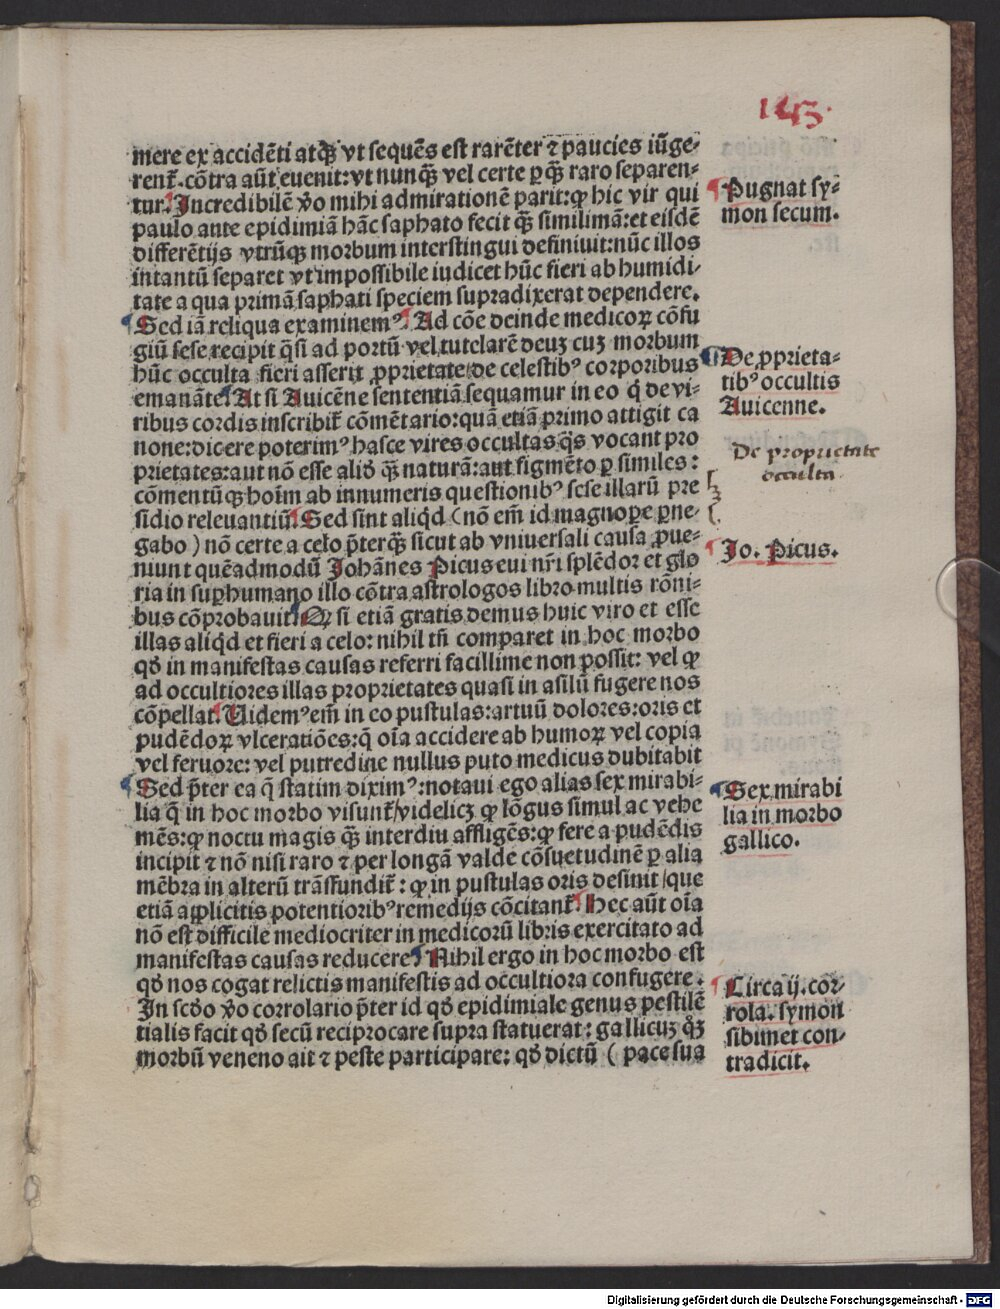 143.
mere ex accidẽti atq̃ʒ vt sequẽs est rarẽter ⁊ paucies iũge-
renť. cõtra aũt euenit: vt nunq̃ʒ vel certe ꝑq̃ʒ raro separen-
tur. Incredibilẽ v̊o mihi admirationẽ parit: ꝙ hic vir qui
paulo ante epidimiã hãc saphato fecit q̃ʒ similimã: et eisdẽ
differẽtijs vtrũqʒ morbum interstingui definiuit: nũc illos
intantũ separet vt impossibile iudicet hũc fieri ab humidi-
tate a qua primã saphati speciem supradixerat dependere.
Sed iã reliqua examinemꝰ. Ad cõe deinde medicoꝝ cõfu
giũ sese recipit q̃si ad portũ vel tutelarẽ deuʒ cuʒ morbum
hũc occulta fieri asserit ꝓprietate de celestibꝰ corporibus
emanãte. At si Auicẽne sententiã sequamur in eo q̇ de vi-
ribus cordis inscribiť cõmẽtario: quã etiã primo attigit ca
none: dicere poterimꝰ hasce vires occultas q̃s vocant pro
prietates: aut nõ esse aliď q̃ʒ naturã: aut figmẽto ꝑ similes:
cõmentũqʒ hoĩm ab innumeris questionibꝰ sese illarũ pre
sidio releuantiũ. Sed sint aliq̇d (nõ em̃ id magnopere ꝑne-
gabo) nõ certe a celo p̃terq̃ʒ sicut ab vniuersali causa ꝓue-
niunt quẽadmodũ Johãnes Picus eui nr̃i splẽdor et glo
ria in suꝑhumano illo cõtra astrologos libro multis rõni-
bus cõprobauit. Qꝛ si etiã gratis demus huic viro et esse
illas aliq̇d et fieri a celo: nihil tñ comparet in hoc morbo
qď in manifestas causas referri facillime non possit: vel ꝙ
ad occultiores illas proprietates quasi in asilũ fugere nos
cõpellat. Uidemꝰ em̃ in eo pustulas: artuũ dolores: oris et
pudẽdoꝝ vlceratiões: q̃ oĩa accidere ab humoꝝ vel copia
vel feruore: vel putredine nullus puto medicus dubitabit
Sed p̃ter ea q̃ statim diximꝰ: notaui ego alias sex mirabi-
lia q̃ in hoc morbo visunť/videlicʒ ꝙ lõgus simul ac vehe
mẽs: ꝙ noctu magis q̃ʒ interdiu affligẽs: ꝙ fere a pudẽdis
incipit ⁊ nõ nisi raro ⁊ per longã valde cõsuetudinẽ ꝑ alia
mẽbra in alterũ trãsfundiť: ꝙ in pustulas oris desinit/que
etiã applicitis potentioribꝰ remedijs cõcitanť. Hec aũt oĩa
nõ est difficile mediocriter in medicorũ libris exercitato ad
manifestas causas reducere. Nihil ergo in hoc morbo est
qď nos cogat relictis manifestis ad occultiora confugere.
In scďo v̊o corrolario p̃ter id qď epidimiale genus pestilẽ
tialis facit qď secũ reciprocare supra statuerat: gallicuʒ q̊ʒ
morbũ veneno ait ⁊ peste participare: qď dictũ (pace sua
Pugnat sy-
mon secum.
De ꝓprieta-
tibꝰ occultis
Auicenne.
De proprietate
occulta
Jo. Picus.
Sex mirabi
lia in morbo
gallico.
Circa ij. cor-
rola. symon
sibimet con-
tradicit.
Digitalisierung gefördert durch die Deutsche Forschungsgemeinschaft - DFG